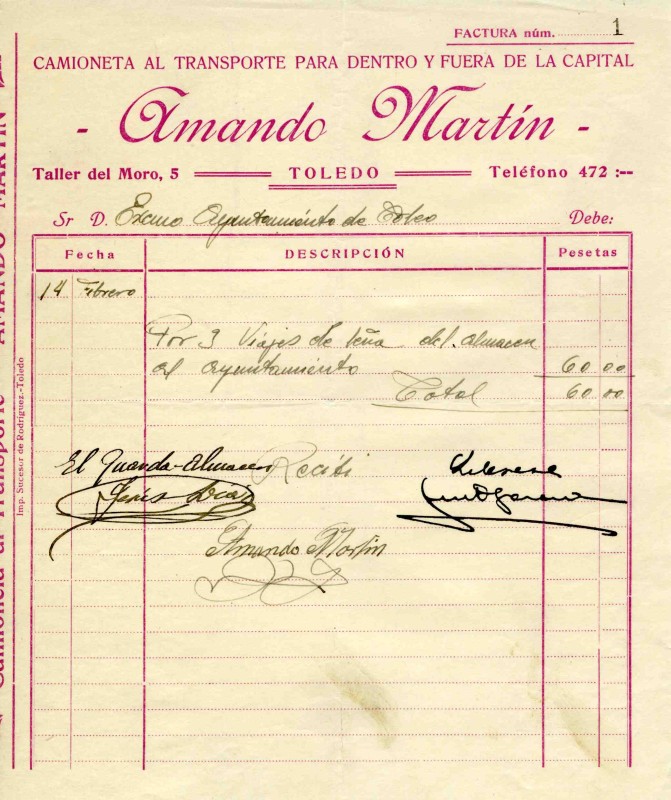 FACTURA núm. 1
CAMIONETA AL TRANSPORTE PARA DENTRO Y FUERA DE LA CAPITAL
- Amando Martín -
Taller del Moro, 5 TOLEDO Teléfono 472 :--
Sr D. Excmo Ayuntamiénto de Toleo Debe:
Fecha DESCRIPCIÓN Pesetas
14 Febrero
Por 3 Viajes de leña del. almacen
al ayuntamiénto 60 00
Total 60.00
El Guarda-Almacen Recibi
Jesús Díaz
Amando Martin
Camioneta al Transporte AMANDO MARTÍN
Imp. Sucesor de Rodríguez.-Toledo